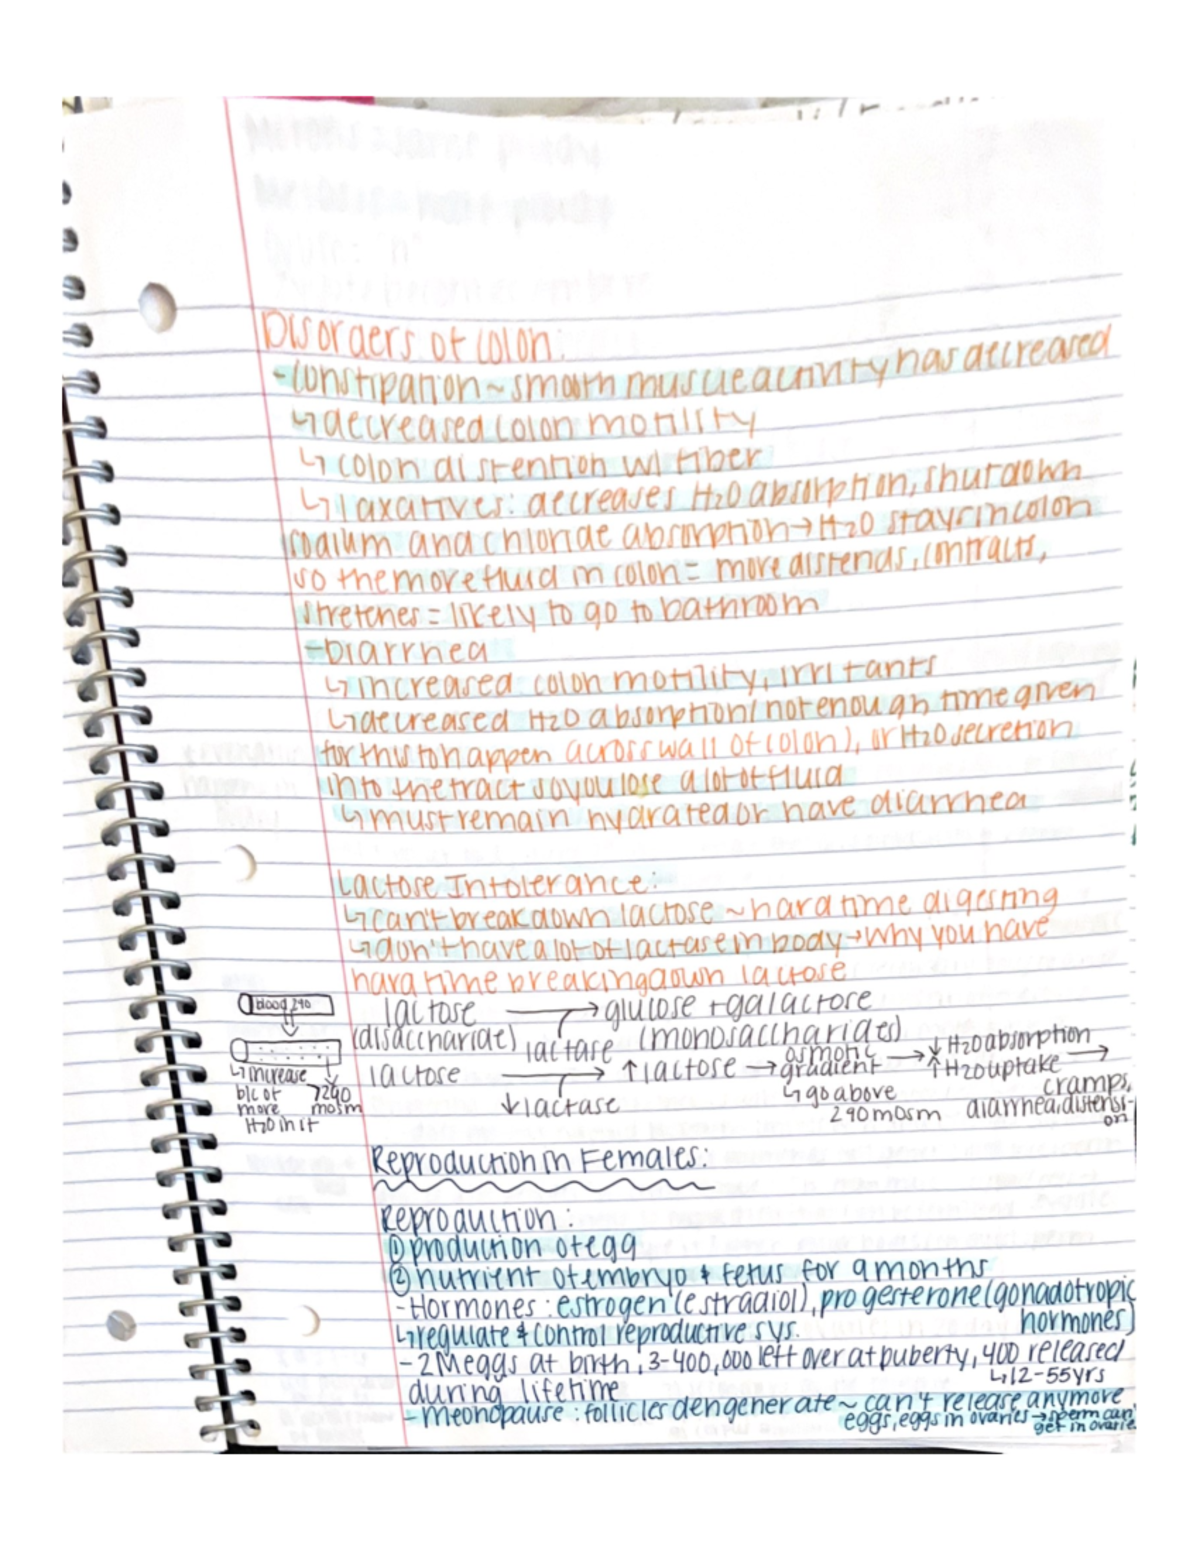 Disorders of colon:
-constipation ~ smooth muscle activity has decreased
↳decreased colon motility
↳ colon distention w/ fiber
↳ laxatives: decreases H2O absorption, shut down
sodium and chloride absorption → H2O stays in colon
so the more fluid in colon = more distends, contracts,
stretches = likely to go to bathroom
-Diarrhea
↳ increased colon motility, irritants
↳decreased H2O absorption (not enough time given
for this to happen across wall of colon), or H2O secretion
into the tract so you lose a lot of fluid
↳ must remain hydrated or have diarrhea
Lactose Intolerance:
↳can't break down lactose ~ hard time digesting
↳don't have a lot of lactase in body → why you have
hard time breaking down lactose
blood 290
lactose → glucose + galactose
(disaccharide) lactase (monosaccharides)
↳ increase
b/c of
more
H2O in it
7290
mosm
lactose → ↑ lactose → osmotic gradient → ↓ H2O absorption
↑ H2O uptake →
↓ lactase
↳ go above
290 mOsm
cramps,
diarrhea, distensi-
on
Reproduction in Females:
Reproduction:
① production of egg
② nutrient of embryo & fetus for 9 months
- Hormones: estrogen (estradiol), progesterone (gonadotropic
hormones)
↳regulate & control reproductive sys.
- 2M eggs at birth, 3-400,000 left over at puberty, 400 released
↳12-55yrs
during lifetime
-meonopause: follicles dengenerate ~ can't release anymore
eggs, eggs in ovaries → sperm can
get in ovarie